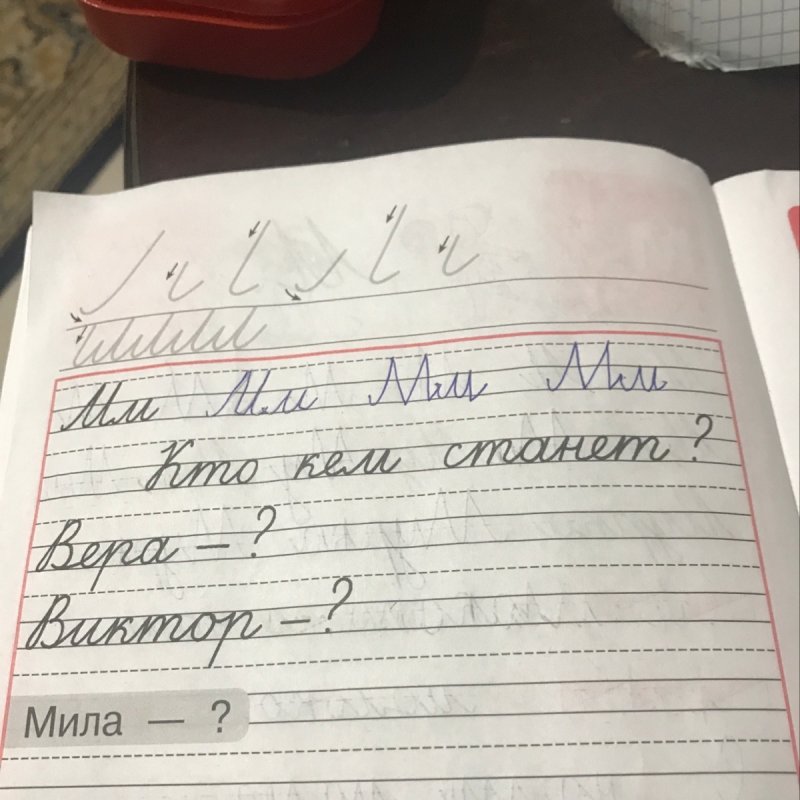 Мм Мм Мм Мм
Кто кем станет?
Вера – ?
Виктор – ?
Мила — ?